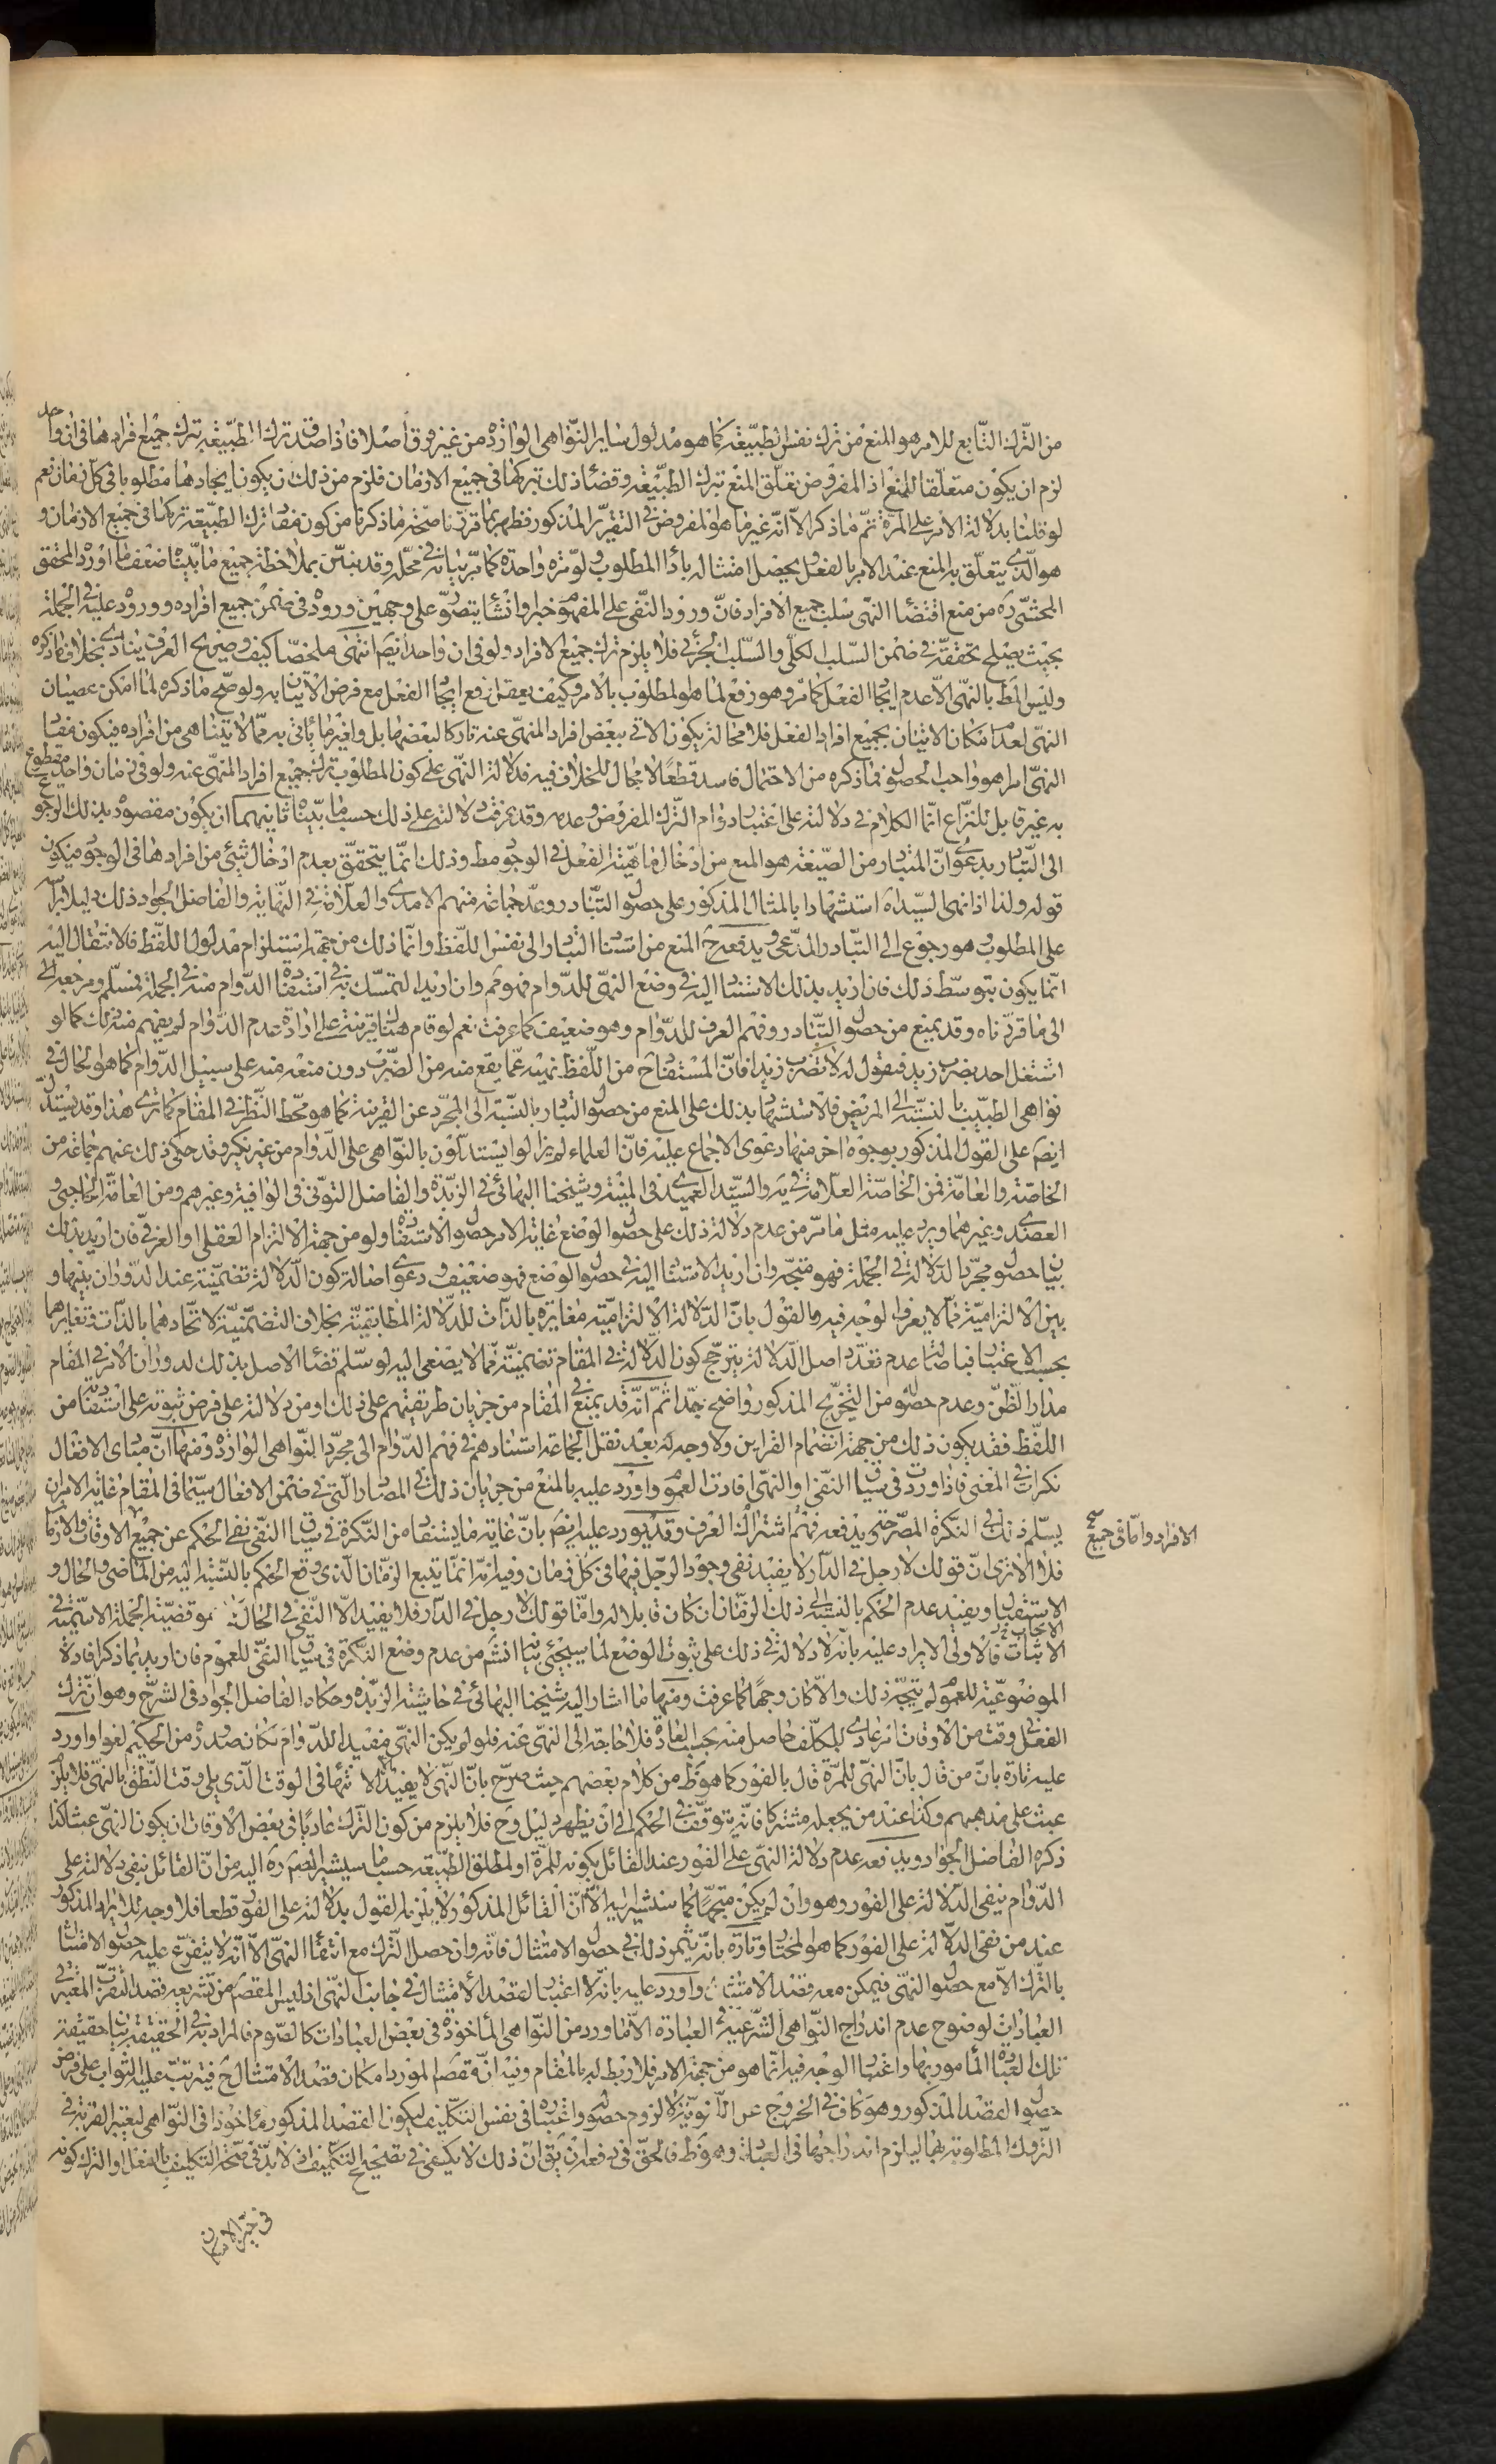 من الترك التابع للامر هو المنع من ترك نفس الطبيعة كما هو مدلول ساير النواهى الواردة من غير فرق اصلا فاذا صدق ترك الطبيعة بترك جميع افرادها فى ان واحد
لزم ان يكون متعلقا للمنع اذ المفروض تعلق المنع بترك الطبيعة وقضاء ذلك تركها فى جميع الازمان فلزم من ذلك ان يكون ايجادها مطلوبا فى كل زمان نعم
لو قلنا بدلالة الامر على المرة تم ما ذكر الا انه غير ما هو المفروض فى التقرير المذكور فظهر بما قررنا صحة ما ذكرنا من كون مفاد ترك الطبيعة تركها فى جميع الازمان و
هو الذى يتعلق به المنع عند الامر بالفعل و يحصل امتثاله باداء المطلوب ولو مرة واحدة كما مر بيانه فى محله وقد تبين بملاحظة جميع ما بيناه ضعف ما اورده المحقق
المحشى ره من منع اقتضاء النهى سلب جميع الافراد فان ورود النفى على المفهوم خبرا وانشاء يتصور على وجهين وروده فى ضمن جميع افراده ووروده عليه فى الجملة
بحيث يصلح تحققه فى ضمن السلب الكلى والسلب الجزئى فلا يلزم ترك جميع الافراد ولو فى ان واحد ايضم انتهى ملخصا كيف وصريح العرف ينادى بخلاف ما ذكره
وليس المط بالنهى الا عدم ايجاد الفعل كما مر وهو رفع لما هو المطلوب بالامر وكيف يعقل رفع ايجاد الفعل مع فرض الاتيان به ولو صح ما ذكره لما امكن عصيان
النهى لعدم امكان الاتيان بجميع افراد الفعل فلا محالة يكون الاتى ببعض افراد المنهى عنه تاركا لبعضها بل واغير ما ياتى به مما لا يتناهى من افراده فيكون مفاد
النهى امرا هو واجب الحصول فما ذكره من الاحتمال فاسد قطعا لا مجال للخلاف فيه فدلالة النهى على كون المطلوب ترك جميع افراد المنهى عنه ولو فى زمان واحد مقطوع
به غير قابل للنزاع انما الكلام فى دلالته على اعتبار دوام الترك المفروض وعدمه وقد عرفت دلالته على ذلك حسبما بيناه ثانيهما ان يكون مقصوده بذلك الرجوع
الى التبادر بدعوى ان المتبادر من الصيغة هو المنع من ادخال ماهية الفعل فى الوجود مط وذلك انما يتحقق بعدم ادخال شيئ من افرادها فى الوجود فيكون
قوله ولذا اذا نهى السيد اه استشهادا بالمثال المذكور على حصول التبادر وعد جماعة منهم الامدى والعلامة فى النهاية والفاضل الجواد ذلك دليلا براسه
على المطلوب هو رجوع الى التبادر المدعى ويدفعه ح المنع من استناد التبادر الى نفس اللفظ وانما ذلك من جهة استلزام مدلول اللفظ فالانتقال اليه
انما يكون بتوسط ذلك فان اريد بذلك الاستناد اليه فى وضع النهى للدوام فهو ثم وان اريد التمسك به فى استفادة الدوام منه فى الجملة فمسلم ومرجعه الى
الى ما قررناه وقد يمنع من حصول التبادر وفهم العرف للدوام وهو ضعيف كما عرفت نعم لو قام هناك قرينة على ارادة عدم الدوام لم يفهم منه ذلك كما لو
اشتغل احد بضرب زيد فتقول له لا تضرب زيدا فان المستفاد ح من اللفظ نهيه عما يقع منه من الضرب دون منعه منه على سبيل الدوام كما هو الحال فى
نواهى الطبيب بالنسبة الى المريض فالاستشهاد بذلك على المنع من حصول التبادر بالنسبة الى المجرد عن القرينة كما هو محط النظر فى المقام كما ترى هذا وقد يستدل
ايضم على القول المذكور بوجوه اخر منها دعوى الاجماع عليه فان العلماء لم يزالوا يستدلون بالنواهى على الدوام من غير نكير وقد حكى ذلك عنهم جماعة من
الخاصة والعامة فمن الخاصة العلامة فى يه والسيد العميدى فى المنية وشيخنا البهائى فى الزبدة والفاضل التونى فى الوافية وغيرهم ومن العامة الحاجبى و
العضدى وغيرهما ويرد عليه مثل ما مر من عدم دلالة ذلك على حصول الوضع غاية الامر حصول الاستفادة ولو من جهة الالتزام العقلى او العرفى فان اريد بذلك
بيان حصول مجرد الدلالة فى الجملة فهو متجه وان اريد الاستناد اليه فى حصول الوضع فهو ضعيف ودعوى اصالة كون الدلالة تضمنية عند الدوران بينها و
بين الالتزامية مما لا يعرف الوجه فيه والقول بان الدلالة الالتزامية مغايرة بالذات للدلالة المطابقية بخلاف التضمنية لاتحادهما بالذات وتغايرهما
بحسب الاعتبار فباصالة عدم تعدد اصل الدلالة يترجح كون الدلالة فى المقام تضمنية مما لا يصغى اليه لو سلم قضاء الاصل بذلك لدوران الامر فى المقام
مدار الظن وعدم حصوله من التخريج المذكور واضح جدا ثم انه قد يمنع فى المقام من جريان طريقتهم على ذلك او من دلالته على فرض ثبوته على استفادته من
اللفظ فقد يكون ذلك من جهة انضمام القراين ولا وجه له بعد نقل الجماعة استنادهم فى فهم الدوام الى مجرد النواهى الواردة ومنها ان مبادى الافعال
نكرات فى المعنى فاذا وردت فى سياق النفى او النهى افادت العموم واورد عليه بالمنع من جريان ذلك فى المصادر التى فى ضمن الافعال سيما فى المقام غاية الامر ان
يسلم ذلك فى النكرة المصرحة ويدفعه فهم اشتراك العرف وقد يورد عليه ايضم بان غاية ما يستفاد من النكرة فى سياق النفى نفى الحكم عن جميع الاوقات والازمان
الافراد واما فى جميع صح
فلا الا ترى ان قولك لا رجل فى الدار لا يفيد نفى وجود الرجل فيها فى كل زمان وفيه انه انما يتبع الزمان الذى وقع الحكم بالنسبة اليه من الماضى والحال و
الاستقبال ويفيد عدم الحكم بالنسبة الى ذلك الزمان ان كان قابلا له واما قولك لا رجل فى الدار فلا يفيد الا النفى فى الحال كما هو قضية الجملة الاسمية فى
الاثبات فالاولى الايراد عليه بانه لا دلالة فى ذلك على ثبوت الوضع لما سيجئى بيانه انشم من عدم وضع النكرة فى سياق النفى للعموم فان اريد بما ذكر افادة
الموضوعية للعموم لم يتجه ذلك والا كان وجها كما عرفت ومنها ما اشار اليه شيخنا البهائى فى حاشية الزبدة وحكاه الفاضل الجواد فى الشرح وهو ان ترك
الفعل فى وقت من الاوقات امر عادى للمكلف حاصل منه بحسب العادة فلا حاجة الى النهى عنه فلو لم يكن النهى مفيدا للدوام لكان صدوره من الحكيم لغوا واورد
عليه تارة بان من قال بان النهى للمرة قال بالفور كما هو ظ من كلام بعضهم حيث صرح بان النهى لا يفيد الا الانتهاء فى الوقت الذى يلى وقت النطق بالنهى فلا يلزم
عبث على مذهبهم وكذا عند من يجعله مشتركا فانه يتوقف فى الحكم الى ان يظهر دليل وح فلا يلزم من كون الترك عاديا فى بعض الاوقات ان يكون النهى عبثا كذا
ذكره الفاضل الجواد ويدفعه عدم دلالة النهى على الفور عند القائل بكونه للمرة او لمطلق الطبيعة حسبما سيشير المصم ره اليه من ان القائل بنفى دلالته على
الدوام ينفى الدلالة على الفور وهو وان لم يكن متجها كما سنشير اليه الا ان القائل المذكور لا يلزمه القول بدلالته على الفور قطعا فلا وجه للايراد المذكور
عند من نفى الدلالة على الفور كما هو المختار وتارة بانه يثمر ذلك فى حصول الامتثال فانه وان حصل الترك مع انتفاء النهى الا انه لا يتفرع عليه حصول الامتثال
بالترك الا مع حصول النهى فيمكن معه قصد الامتثال واورد عليه بانه لا اعتبار لقصد الامتثال فى جانب النهى اذ ليس المقصم من تشريعه قصد التقرب المعتبر فى
العبادات لوضوح عدم اندراج النواهى الشرعية فى العبادة الا ما ورد من النواهى الماخوذة فى بعض العبادات كالصوم فالمراد به فى الحقيقة بيان حقيقة
تلك العبادة المامور بها واعتبار الوجه فيه انما هو من جهة الامر فلا ربط له بالمقام وفيه انه مقصم المورد امكان قصد الامتثال ح فيترتب عليه الثواب على فرض
حصول القصد المذكور وهو كاف فى الخروج عن اللغوية لا لزوم حصوله واعتباره فى نفس التكليف ليكون القصد المذكور ماخوذا فى النواهى ليعتبر القربة فى
التروك المطلوبة بها ليلزم اندراجها فى العبادة وهو ظ فالحق فى دفعه ان يق ان ذلك لا يكفى فى تصحيح التكليف اذ لا بد فى صحة التكليف بالفعل او الترك كونه